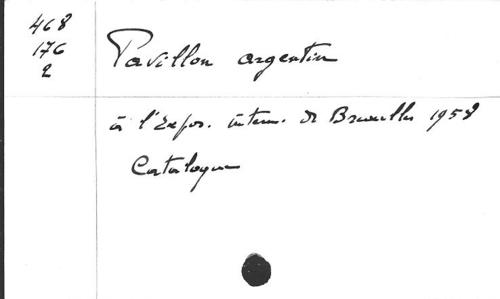 468
176
2
Pavillon argentin
à l'Expos. intern. de Bruxelles 1958
Catalogue